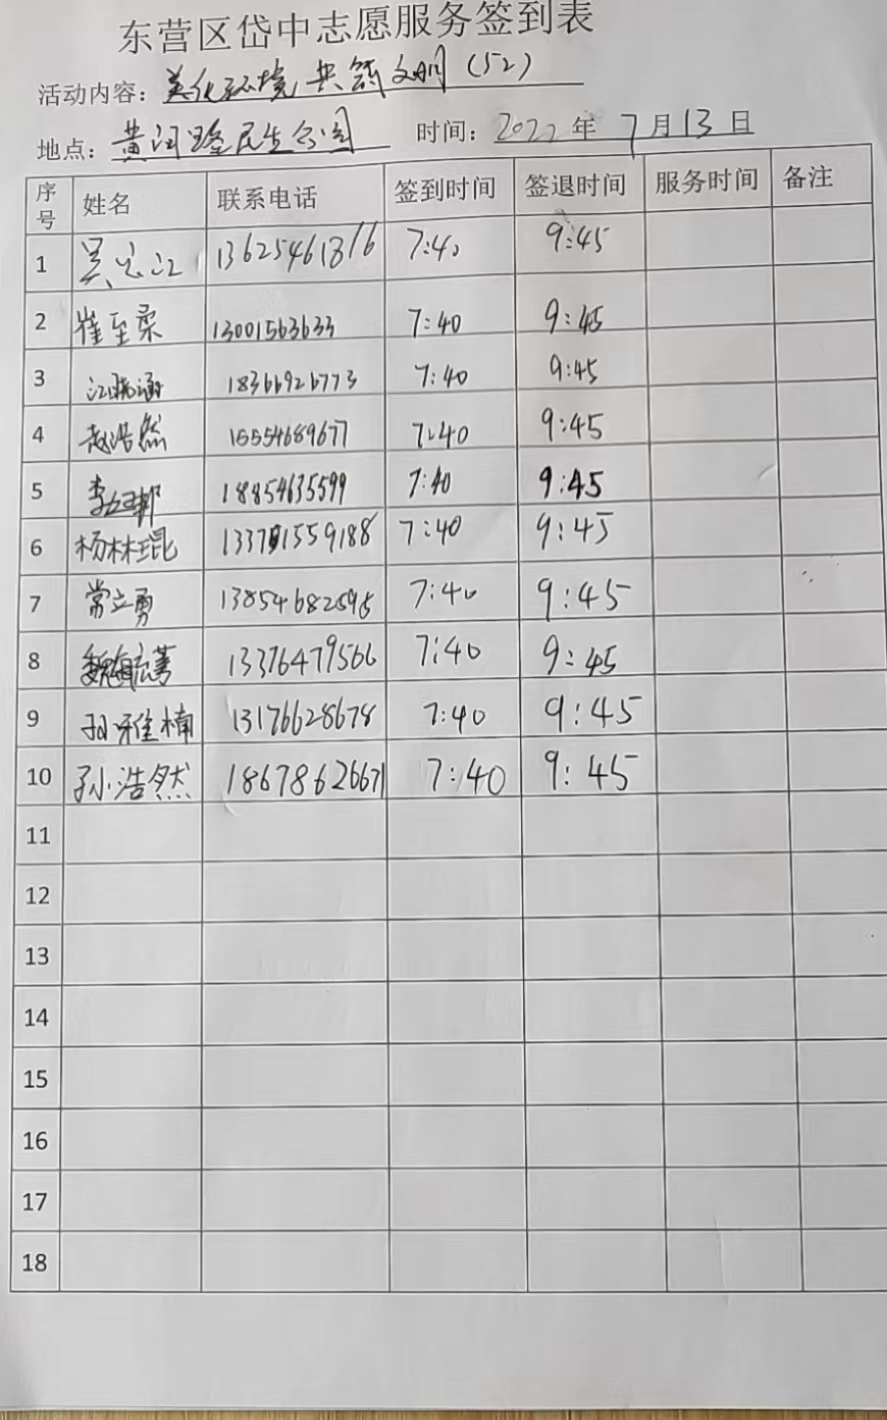 东营区岱中志愿服务签到表
活动内容：美化环境 共筑文明（52）
地点：黄河路民生公园 时间：2022年 7月13日
序号 姓名 联系电话 签到时间 签退时间 服务时间 备注
1 吴忠江 13625461816 7:40 9:45
2 崔至柔 13001563633 7:40 9:45
3 江晓涵 18366926773 7:40 9:45
4 赵浩然 15554689677 7:40 9:45
5 李 18854635599 7:40 9:45
6 杨林琨 7:40 9:45
7 常立勇 13854682595 7:40 9:45
8 魏 13376479566 7:40 9:45
9 孙雅楠 13176628678 7:40 9:45
10 孙浩然 18678626671 7:40 9:45
11
12
13
14
15
16
17
18